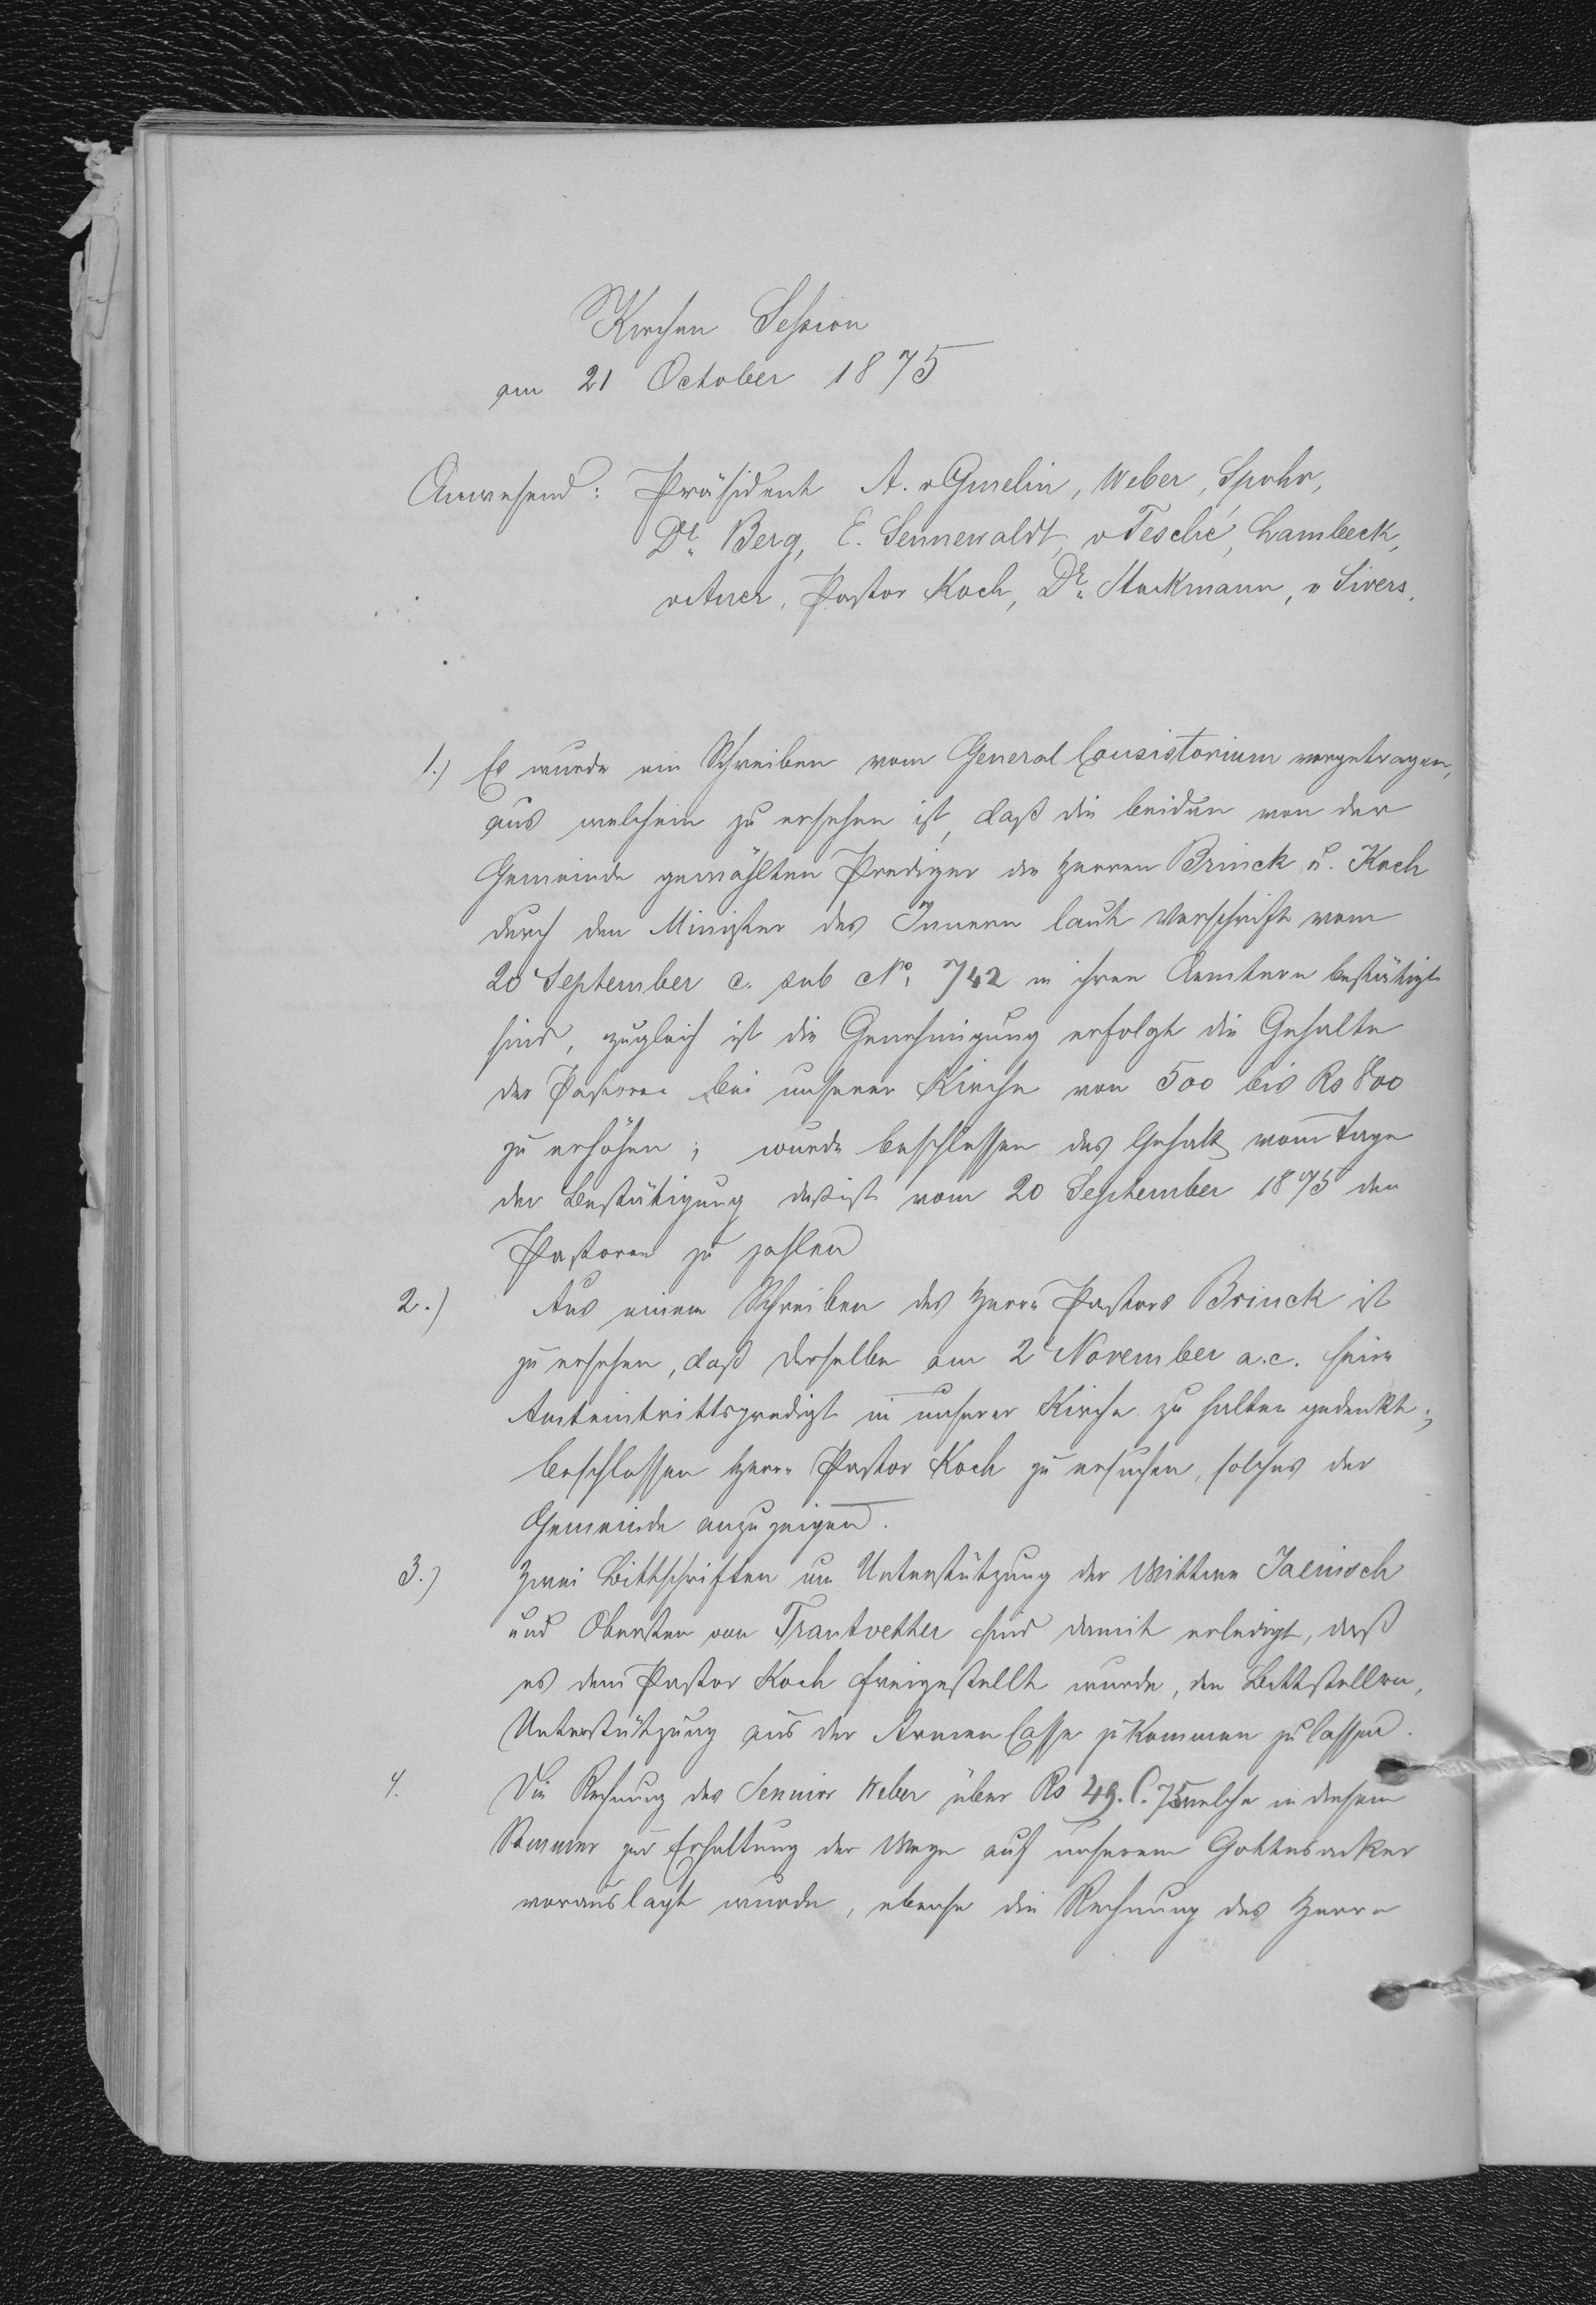 Kirchen Session
am 21 October 1875
Anwesend: Präsident A. v Gmelin, Weber, Spohr,
Dr. Berg, E. Sennewaldt, v Fesché, Lambeck,
v Auer, Pastor Koch, Dr. Stuckmann, v Sivers.
1.) Es wurde ein Schreiben vom General Consistorium vorgetragen,
aus welchem zu ersehen ist, daß die beiden von der
Gemeinde gewählten Prediger die Herren Brinck u. Koch
durch den Minister des Innern laut Vorschrift vom
20 September c. sub No. 742 in ihren Aemtern bestätigt
sind, zugleich ist die Genehmigung erfolgt die Gehalte
der Pastoren bei unserer Kirche von 500 bis Rs 800
zu erhöhen; wurde beschlossen das Gehalt vom Tage
der Bestätigung das ist vom 20 September 1875 den
Pastoren zu zahlen
2.) Aus einem Schreiben des Herrn Pastors Brinck ist
zu ersehen, daß derselbe am 2 November a.c. seine
Amteintrittspredigt in unserer Kirche zu halten gedenkt;
beschlossen Herrn Pastor Koch zu ersuchen, solches der
Gemeinde anzuzeigen.
3.) Zwei Bittschriften um Unterstützung der Wittwe Jaenisch
und Obersten von Trautvetter sind damit erledigt, daß
es dem Pastor Koch freigestellt wurde, den Bittstellern,
Unterstützung aus der Armen Casse zukommen zu lassen.
4. Die Rechnung des Sennior Weber über Rs 49. C. 75 welche in diesem
Sommer zur Erhaltung der Wege auf unserem Gottesacker
verauslagt wurde, ebenso die Rechnung des Herrn